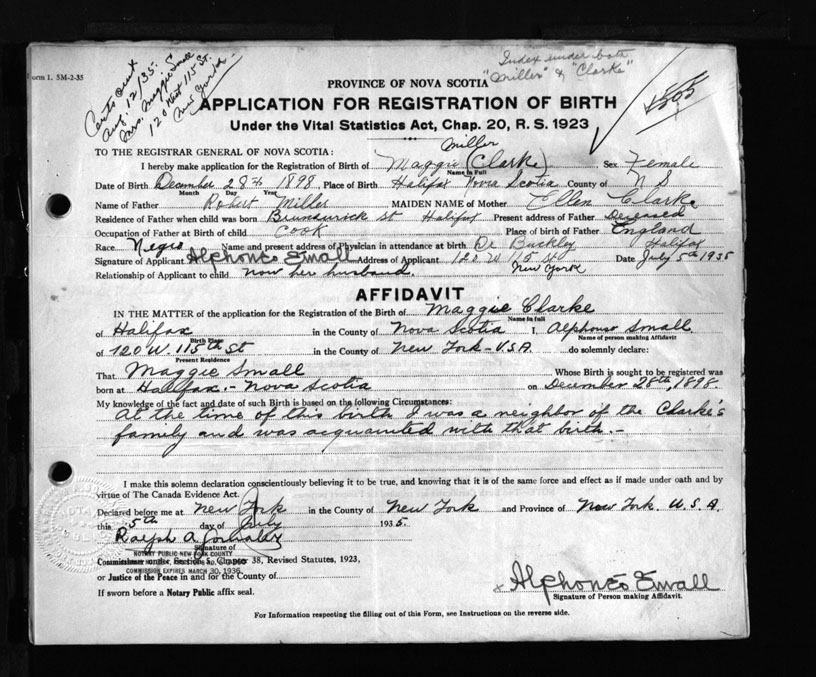 Form 1. 5M-2-35
Certs out
Aug. 12/35.
Mrs. Maggie Small
120 West 115 St.
New York
Index under both
"Miller" & "Clarke"
PROVINCE OF NOVA SCOTIA
APPLICATION FOR REGISTRATION OF BIRTH
Under the Vital Statistics Act, Chap. 20, R. S. 1923
TO THE REGISTRAR GENERAL OF NOVA SCOTIA:
Miller
I hereby make application for the Registration of Birth of Maggie (Clarke) Sex Female
Name in Full
Date of Birth December 28th 1898 Place of Birth Halifax Nova Scotia County of N S
Month Day Year
Name of Father Robert Miller MAIDEN NAME of Mother Ellen Clarke
Residence of Father when child was born Brunswick St Halifax Present address of Father Deceased
Occupation of Father at Birth of child Cook Place of Birth of Father England
Race Negro Name and present address of Physician in attendance at birth Dr Buckley Halifax
Signature of Applicant Alphonso Small Address of Applicant 120 W 115 St New York Date July 5th 1935
Relationship of Applicant to child now her husband.
AFFIDAVIT
IN THE MATTER of the application for the Registration of the Birth of Maggie Clarke
Name in full
of Halifax in the County of Nova Scotia I, Alphonso Small
Birth Place Name of person making Affidavit
of 120 W. 115th St in the County of New York - U.S.A. do solemnly declare:
Present Residence
That Maggie Small Whose Birth is sought to be registered was
born at Halifax - Nova Scotia on December 28th, 1898.
My knowledge of the fact and date of such Birth is based on the following Circumstances:
At the time of this birth I was a neighbor of the Clarke's
family and was acquainted with that birth. -
I make this solemn declaration conscientiously believing it to be true, and knowing that it is of the same force and effect as if made under oath and by
virtue of The Canada Evidence Act.
Declared before me at New York in the County of New York and Province of New York. U.S.A.
this 5th day of July 1935.
Ralph A.
Signature of
NOTARY PUBLIC NEW YORK COUNTY
Commissioner under, Section 5, Chapter 38, Revised Statutes, 1923,
COMMISSION EXPIRES MARCH 30, 1936
or Justice of the Peace in and for the County of
If sworn before a Notary Public affix seal.
x Alphonso Small
Signature of Person making Affidavit.
For Information respecting the filling out of this Form, see Instructions on the reverse side.